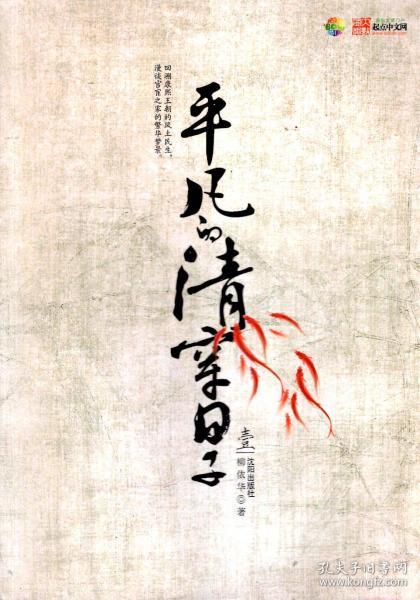 起点中文网
回溯康熙王朝的风土民生,
漫谈官宦之家的繁华梦景。
平凡的清穿日子
壹
沈阳出版社
柳依华◎著
孔夫子旧书网